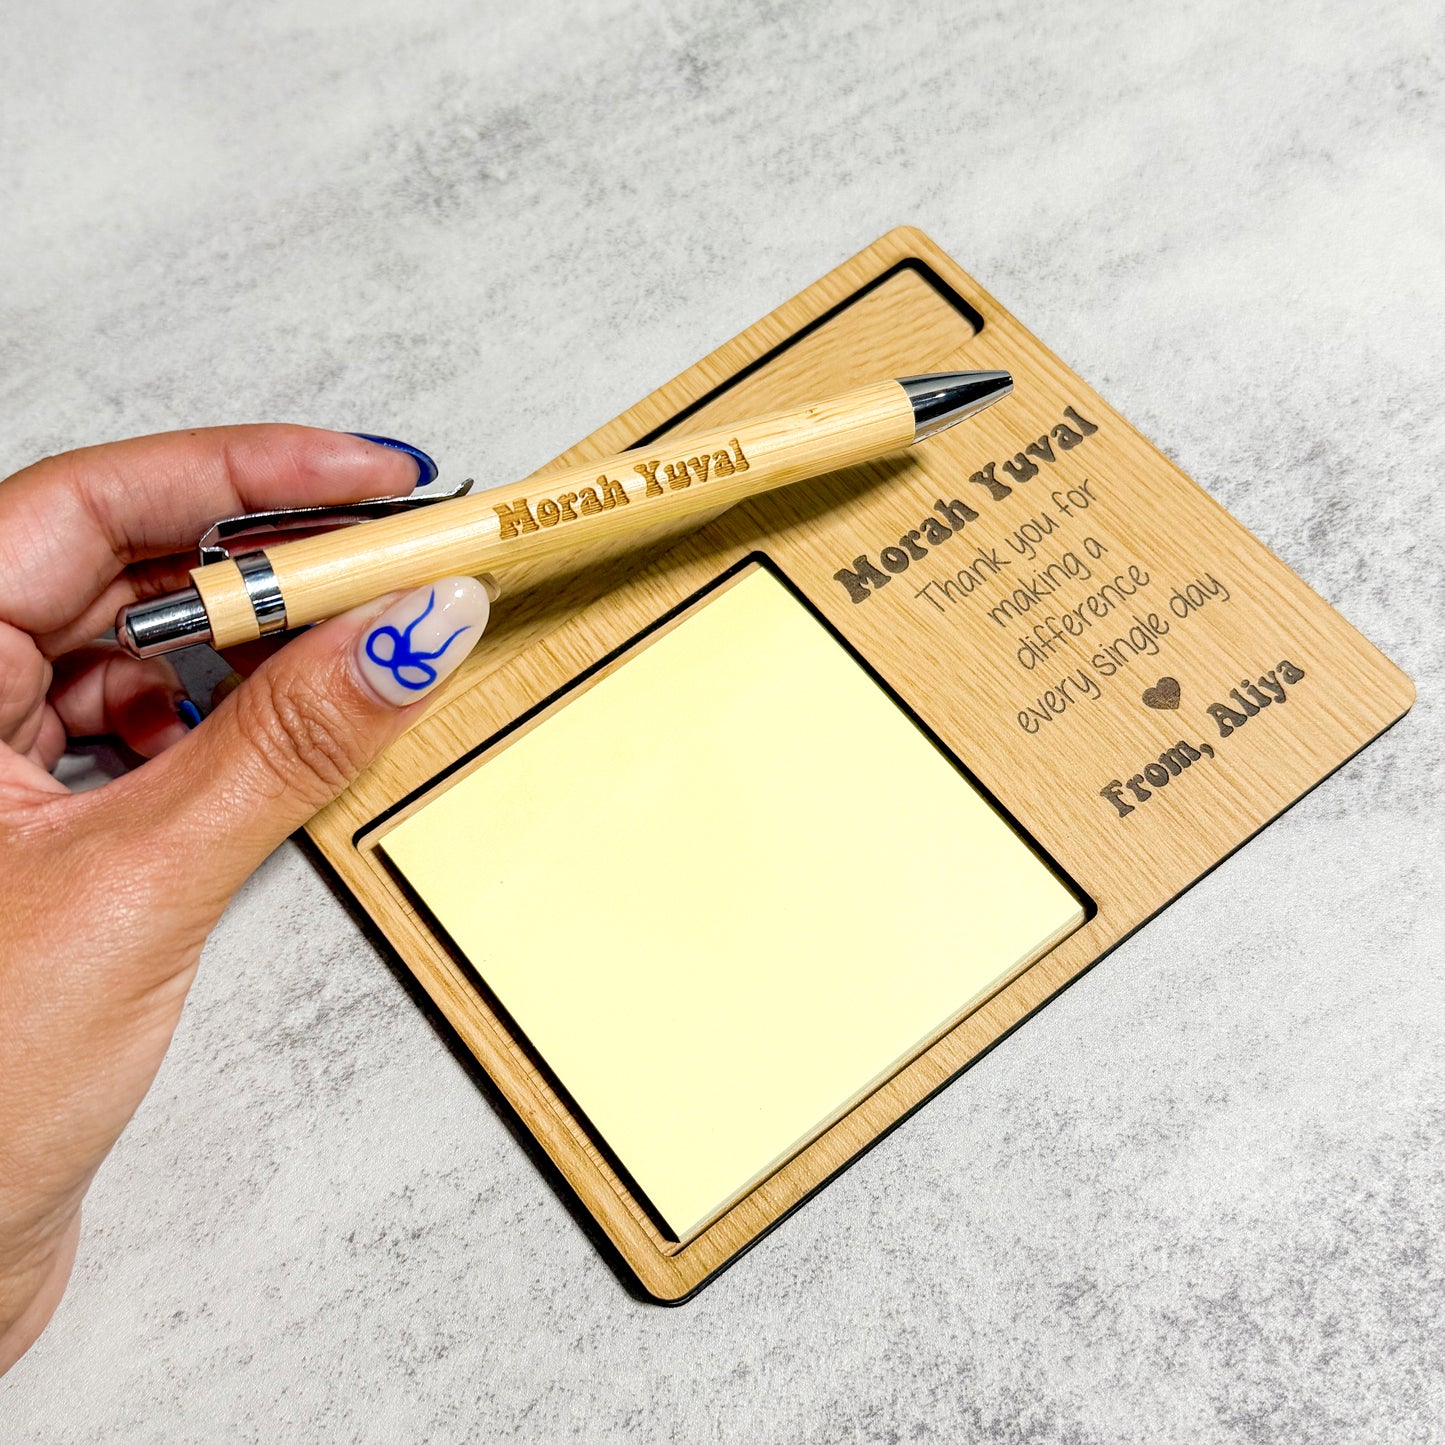 Morah Yuval
Morah Yuval
Thank you for
making a
difference
every single day
From, Aliya